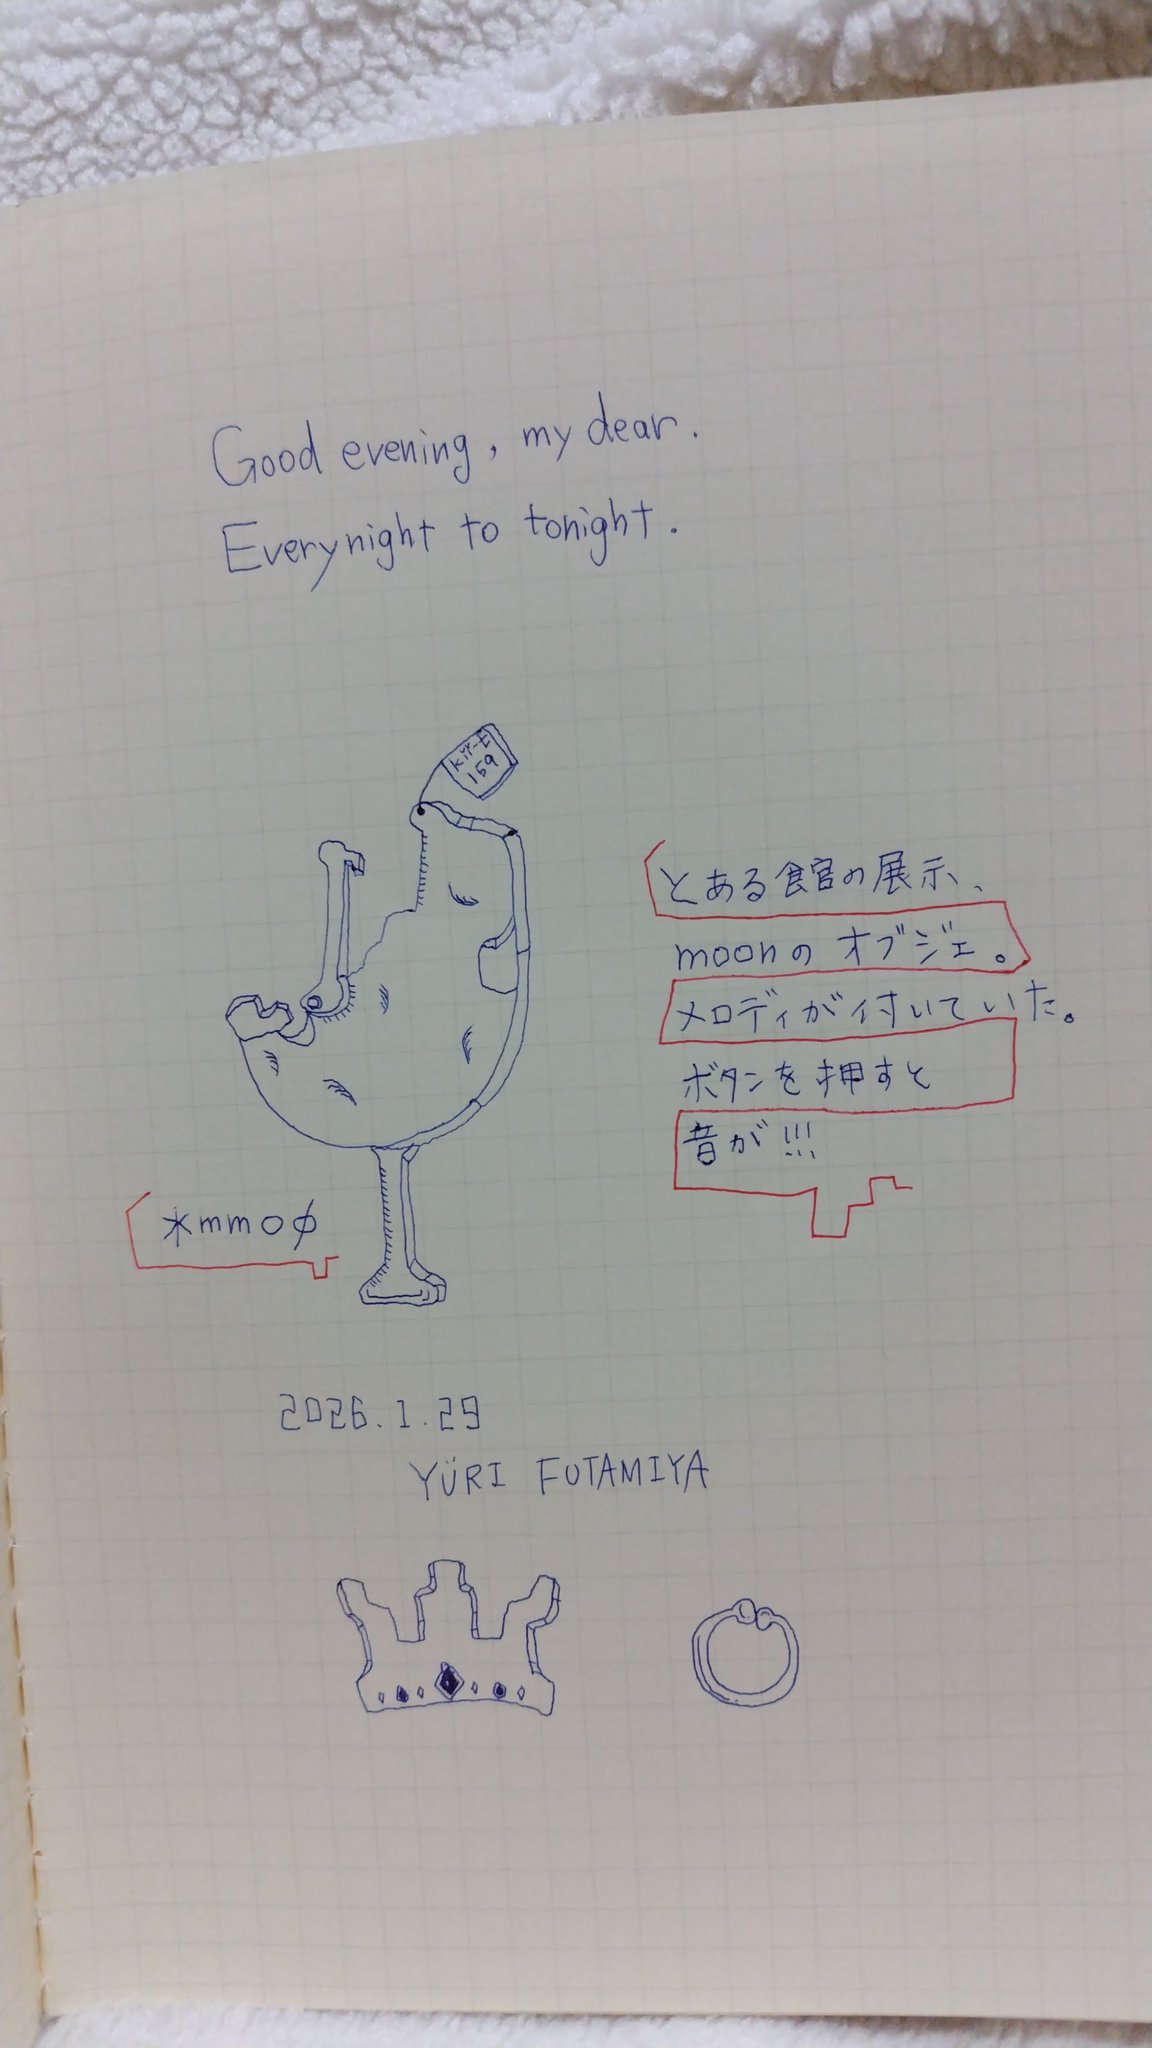 Good evening, my dear.
Everynight to tonight.
kür-t
159
とある食官の展示、
moonのオブジェ。
メロディが付いていた。
ボタンを押すと
音が!!!
*mmoφ
2026.1.29
YÜRI FUTAMIYA